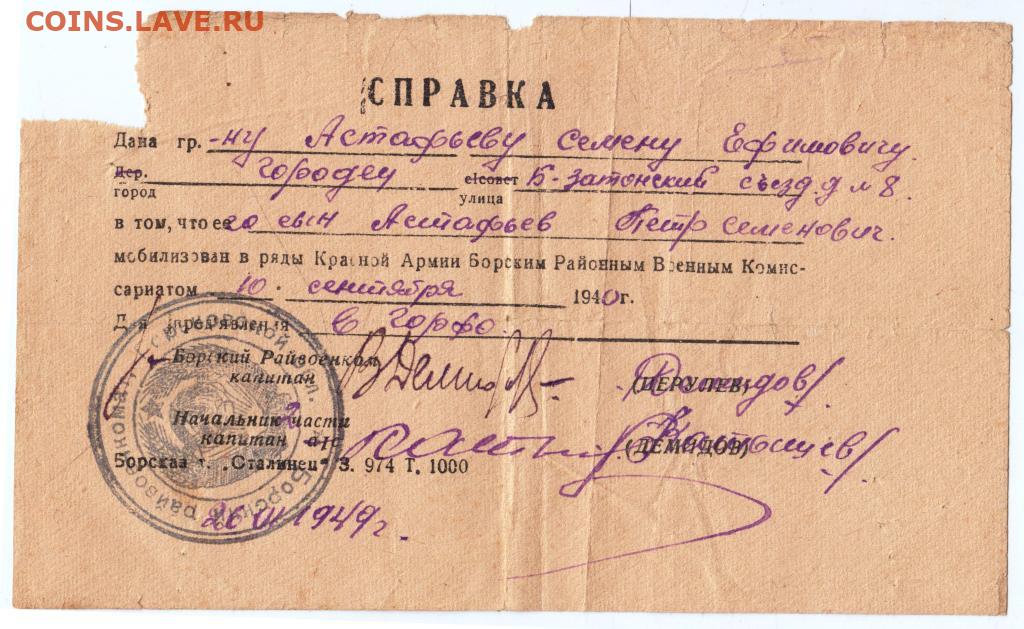 COINS.LAVE.RU
СПРАВКА
Дана гр. -ну Астафьеву Семену Ефимовичу.
Дер. город Городец с/совет улица Б-Затонский съезд д № 8.
в том, что его сын Астафьев Петр Семенович.
мобилизован в ряды Красной Армии Борским Районным Военным Комис-
сариатом 10 сентября 1940г.
Для предъявления в Горфо.
Борский Райвоенком
капитан (ПЕРУЛЕВ) Демидов/
Начальник 2 части
капитан (ДЕМИДОВ)
Борская т. „Сталинец" З. 974 Т. 1000
1949г.